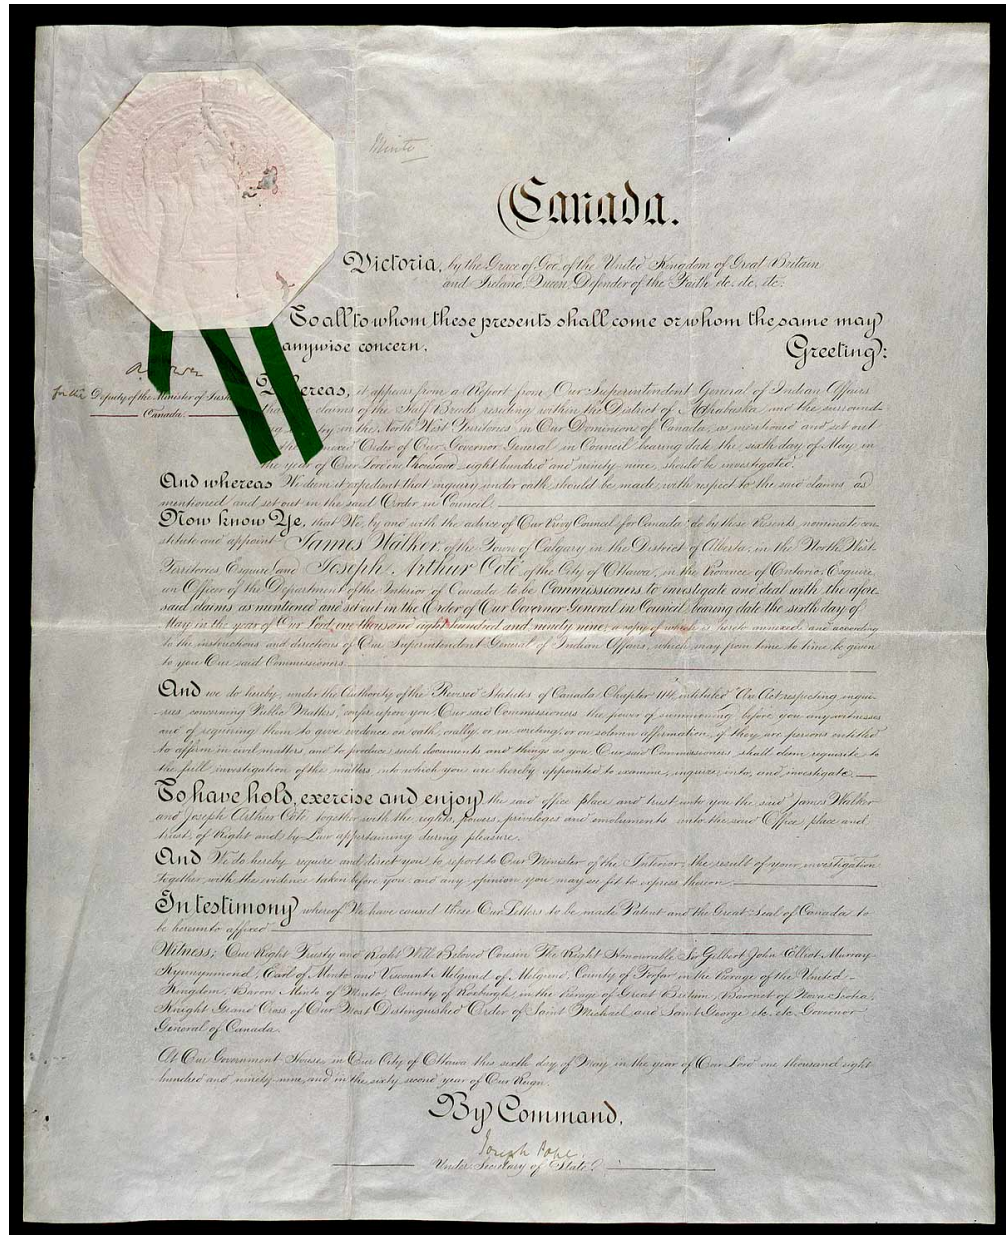 Minto
Canada.
Victoria, by the Grace of God, of the United Kingdom of Great Britain
and Ireland, Queen, Defender of the Faith etc. etc. etc.
To all to whom these presents shall come or whom the same may
anywise concern, Greeting:
for the Deputy of the Minister of Justice
Canada.
Whereas, it appears from a Report from Our Superintendent General of Indian Affairs
that claims of the Half Breeds residing within the District of Athabaska and the surround-
in the North West Territories in Our Dominion of Canada, as mentioned and set out
Order of Our Governor General in Council bearing date the sixth day of May in
the year of Our Lord one thousand eight hundred and ninety nine, should be investigated.
And whereas We deem it expedient that inquiry under oath should be made with respect to the said claims as
mentioned and set out in the said Order in Council.
Now know Ye, that We, by and with the advice of Our Privy Council for Canada do by these Presents, nominate con-
stitute and appoint James Walker, of the Town of Calgary in the District of Alberta, in the North West
Territories, Esquire, and Joseph Arthur Coté of the City of Ottawa, in the Province of Ontario, Esquire,
an Officer of the Department of the Interior of Canada to be Commissioners to investigate and deal with the afore-
said claims as mentioned and set out in the Order of Our Governor General in Council bearing date the sixth day of
May in the year of Our Lord, one thousand eight hundred and ninety nine, a copy of which is hereto annexed, and according
to the instructions and directions of Our Superintendent General of Indian Affairs, which may from time to time be given
to you Our said Commissioners.
And we do hereby, under the Authority of the Revised Statutes of Canada Chapter 114, intituled "An Act respecting inqui-
ries concerning Public Matters," confer upon you, Our said Commissioners the power of summoning before you any witnesses
and of requiring them to give evidence on oath, orally, or in writing, or on solemn affirmation, if they are persons entitled
to affirm in civil matters, and to produce such documents and things as you Our said Commissioners shall deem requisite to
the full investigation of the matters into which you are hereby appointed to examine, inquire, into, and investigate.
To have hold, exercise and enjoy the said office place and trust unto you the said James Walker
and Joseph Arthur Coté together with the rights, powers, privileges and emoluments unto the said Office, place and
trust, of Right and by Law appertaining during pleasure.
And We do hereby require and direct you to report to Our Minister of the Interior, the result of your investigation
together with the evidence taken before you and any opinion you may see fit to express thereon.
In testimony whereof We have caused these Our Letters to be made Patent and the Great Seal of Canada to
be hereunto affixed
Witness; Our Right Trusty and Right Well-Beloved Cousin The Right Honourable Sir Gilbert John Elliot-Murray-
Kynynymond, Earl of Minto and Viscount Melgund of Melgund, County of Forfar in the Peerage of the United
Kingdom, Baron Minto of Minto, County of Roxburgh, in the Peerage of Great Britain, Baronet of Nova Scotia,
Knight Grand Cross of Our Most Distinguished Order of Saint Michael and Saint George etc. etc. Governor
General of Canada.
At Our Government House, in Our City of Ottawa this sixth day of May in the year of Our Lord one thousand eight
hundred and ninety-nine, and in the sixty second year of Our Reign.
By Command,
Joseph Pope.
Under Secretary of State.